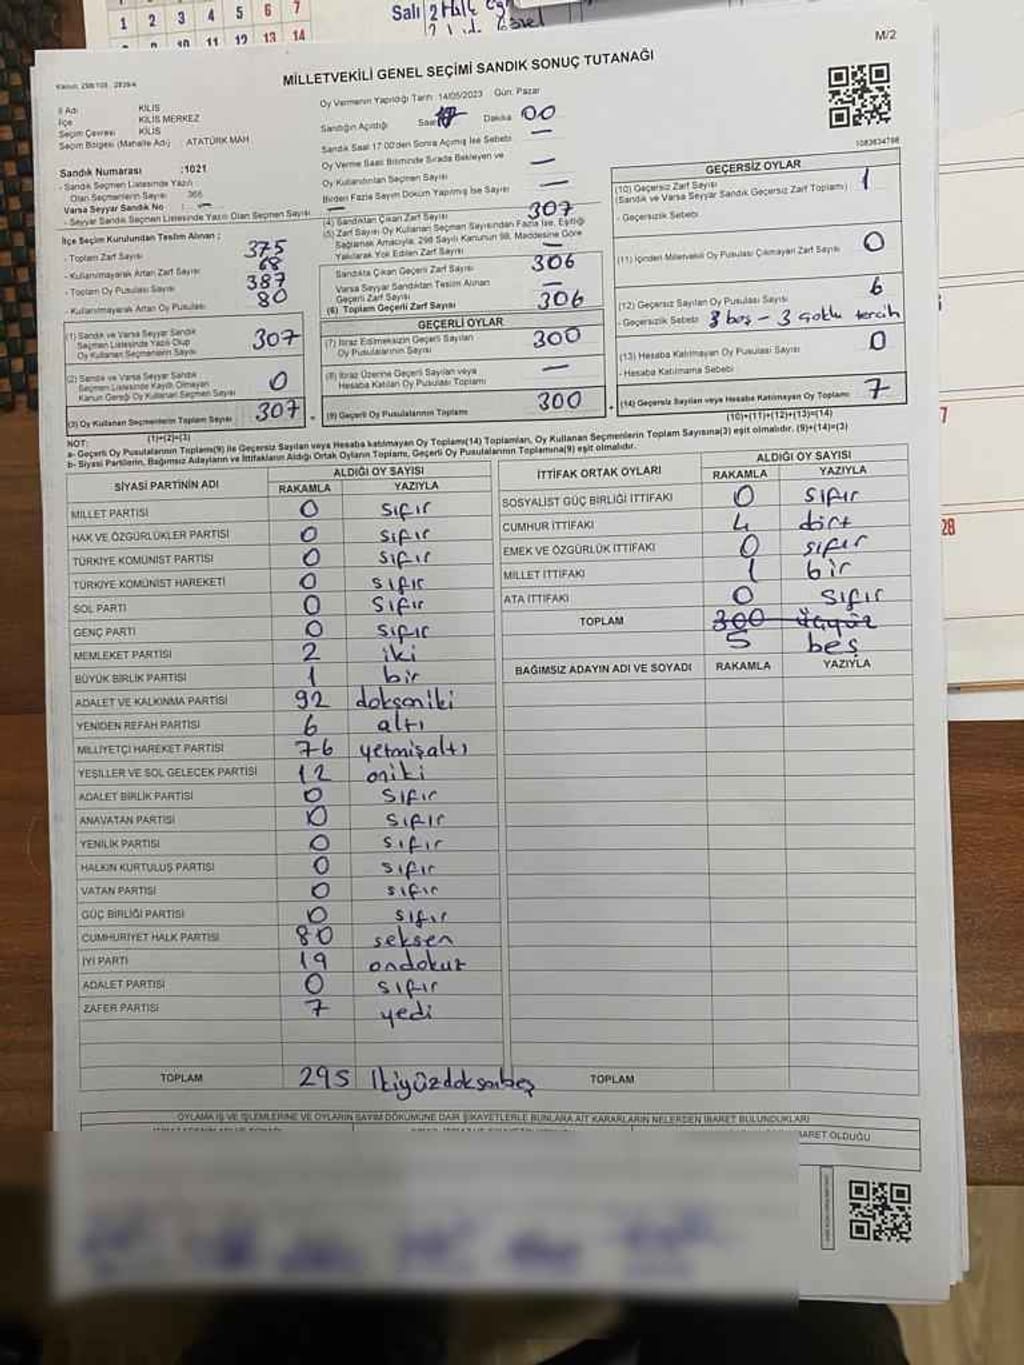 1 2 3 4 5 6 7
10 11 12 13 14
Salı 2
M/2
MİLLETVEKİLİ GENEL SEÇİMİ SANDIK SONUÇ TUTANAĞI
İl Adı KİLİS
İlçe KİLİS MERKEZ
Seçim Çevresi KİLİS
Seçim Bölgesi (Mahalle Adı) : ATATÜRK MAH
Oy Vermenin Yapıldığı Tarih :14/05/2023 Gün: Pazar
Sandığın Açıldığı Saat 17 Dakika 00
Sandık Saat 17:00'den Sonra Açılmış İse Sebebi —
Oy Verme Saati Bitiminde Sırada Bekleyen ve
Oy Kullandırılan Seçmen Sayısı —
Birden Fazla Sayım Döküm Yapılmış İse Sayısı —
Sandık Numarası :1021
- Sandık Seçmen Listesinde Yazılı
Olan Seçmenlerin Sayısı 366
Varsa Seyyar Sandık No : —
- Seyyar Sandık Seçmen Listesinde Yazılı Olan Seçmen Sayısı —
İlçe Seçim Kurulundan Teslim Alınan ;
- Toplam Zarf Sayısı 375
- Kullanılmayarak Artan Zarf Sayısı 68
- Toplam Oy Pusulası Sayısı 387
- Kullanılmayarak Artan Oy Pusulası 80
(1) Sandık ve Varsa Seyyar Sandık
Seçmen Listesinde Yazılı Olup
Oy Kullanan Seçmenlerin Sayısı 307
(2) Sandık ve Varsa Seyyar Sandık
Seçmen Listesinde Kaydı Olmayan
Kanun Gereği Oy Kullanan Seçmen Sayısı 0
(3) Oy Kullanan Seçmenlerin Toplam Sayısı 307
(1)+(2)=(3)
(4) Sandıktan Çıkan Zarf Sayısı 307
(5) Zarf Sayısı Oy Kullanan Seçmen Sayısından Fazla İse, Eşitliği
Sağlamak Amacıyla, 298 Sayılı Kanunun 98. Maddesine Göre
Yakılarak Yok Edilen Zarf Sayısı —
Sandıkta Çıkan Geçerli Zarf Sayısı 306
Varsa Seyyar Sandıktan Teslim Alınan
Geçerli Zarf Sayısı —
(6) Toplam Geçerli Zarf Sayısı 306
GEÇERLİ OYLAR
(7) İtiraz Edilmeksizin Geçerli Sayılan
Oy Pusulalarının Sayısı 300
(8) İtiraz Üzerine Geçerli Sayılan veya
Hesaba Katılan Oy Pusulası Toplamı —
(9) Geçerli Oy Pusulalarının Toplamı 300
1083634798
GEÇERSİZ OYLAR
(10) Geçersiz Zarf Sayısı 1
(Sandık ve Varsa Seyyar Sandık Geçersiz Zarf Toplamı)
- Geçersizlik Sebebi
(11) İçinden Milletvekili Oy Pusulası Çıkmayan Zarf Sayısı 0
(12) Geçersiz Sayılan Oy Pusulası Sayısı 6
- Geçersizlik Sebebi 3 boş - 3 çoklu tercih
(13) Hesaba Katılmayan Oy Pusulası Sayısı 0
- Hesaba Katılmama Sebebi
(14) Geçersiz Sayılan veya Hesaba Katılmayan Oy Toplamı 7
(10)+(11)+(12)+(13)=(14)
NOT:
a- Geçerli Oy Pusulalarının Toplamı(9) ile Geçersiz Sayılan veya Hesaba katılmayan Oy Toplamı(14) Toplamları, Oy Kullanan Seçmenlerin Toplam Sayısına(3) eşit olmalıdır. (9)+(14)=(3)
b- Siyasi Partilerin, Bağımsız Adayların ve İttifakların Aldığı Ortak Oyların Toplamı, Geçerli Oy Pusulalarının Toplamına(9) eşit olmalıdır.
SİYASİ PARTİNİN ADI ALDIĞI OY SAYISI
RAKAMLA YAZIYLA
MİLLET PARTİSİ 0 sıfır
HAK VE ÖZGÜRLÜKLER PARTİSİ 0 sıfır
TÜRKİYE KOMÜNİST PARTİSİ 0 sıfır
TÜRKİYE KOMÜNİST HAREKETİ 0 sıfır
SOL PARTİ 0 sıfır
GENÇ PARTİ 0 sıfır
MEMLEKET PARTİSİ 2 iki
BÜYÜK BİRLİK PARTİSİ 1 bir
ADALET VE KALKINMA PARTİSİ 92 doksaniki
YENİDEN REFAH PARTİSİ 6 altı
MİLLİYETÇİ HAREKET PARTİSİ 76 yetmişaltı
YEŞİLLER VE SOL GELECEK PARTİSİ 12 oniki
ADALET BİRLİK PARTİSİ 0 sıfır
ANAVATAN PARTİSİ 0 sıfır
YENİLİK PARTİSİ 0 sıfır
HALKIN KURTULUŞ PARTİSİ 0 sıfır
VATAN PARTİSİ 0 sıfır
GÜÇ BİRLİĞİ PARTİSİ 0 sıfır
CUMHURİYET HALK PARTİSİ 80 seksen
İYİ PARTİ 19 ondokuz
ADALET PARTİSİ 0 sıfır
ZAFER PARTİSİ 7 yedi
TOPLAM 295 İkiyüzdoksanbeş
İTTİFAK ORTAK OYLARI ALDIĞI OY SAYISI
RAKAMLA YAZIYLA
SOSYALİST GÜÇ BİRLİĞİ İTTİFAKI 0 sıfır
CUMHUR İTTİFAKI 4 dört
EMEK VE ÖZGÜRLÜK İTTİFAKI 0 sıfır
MİLLET İTTİFAKI 1 bir
ATA İTTİFAKI 0 sıfır
TOPLAM 300 üçyüz
5 beş
BAĞIMSIZ ADAYIN ADI VE SOYADI RAKAMLA YAZIYLA
TOPLAM
OYLAMA İŞ VE İŞLEMLERİNE VE OYLARIN SAYIM DÖKÜMÜNE DAİR ŞİKAYETLERLE BUNLARA AİT KARARLARIN NELERDEN İBARET BULUNDUKLARI
BARET OLDUĞU
7
28